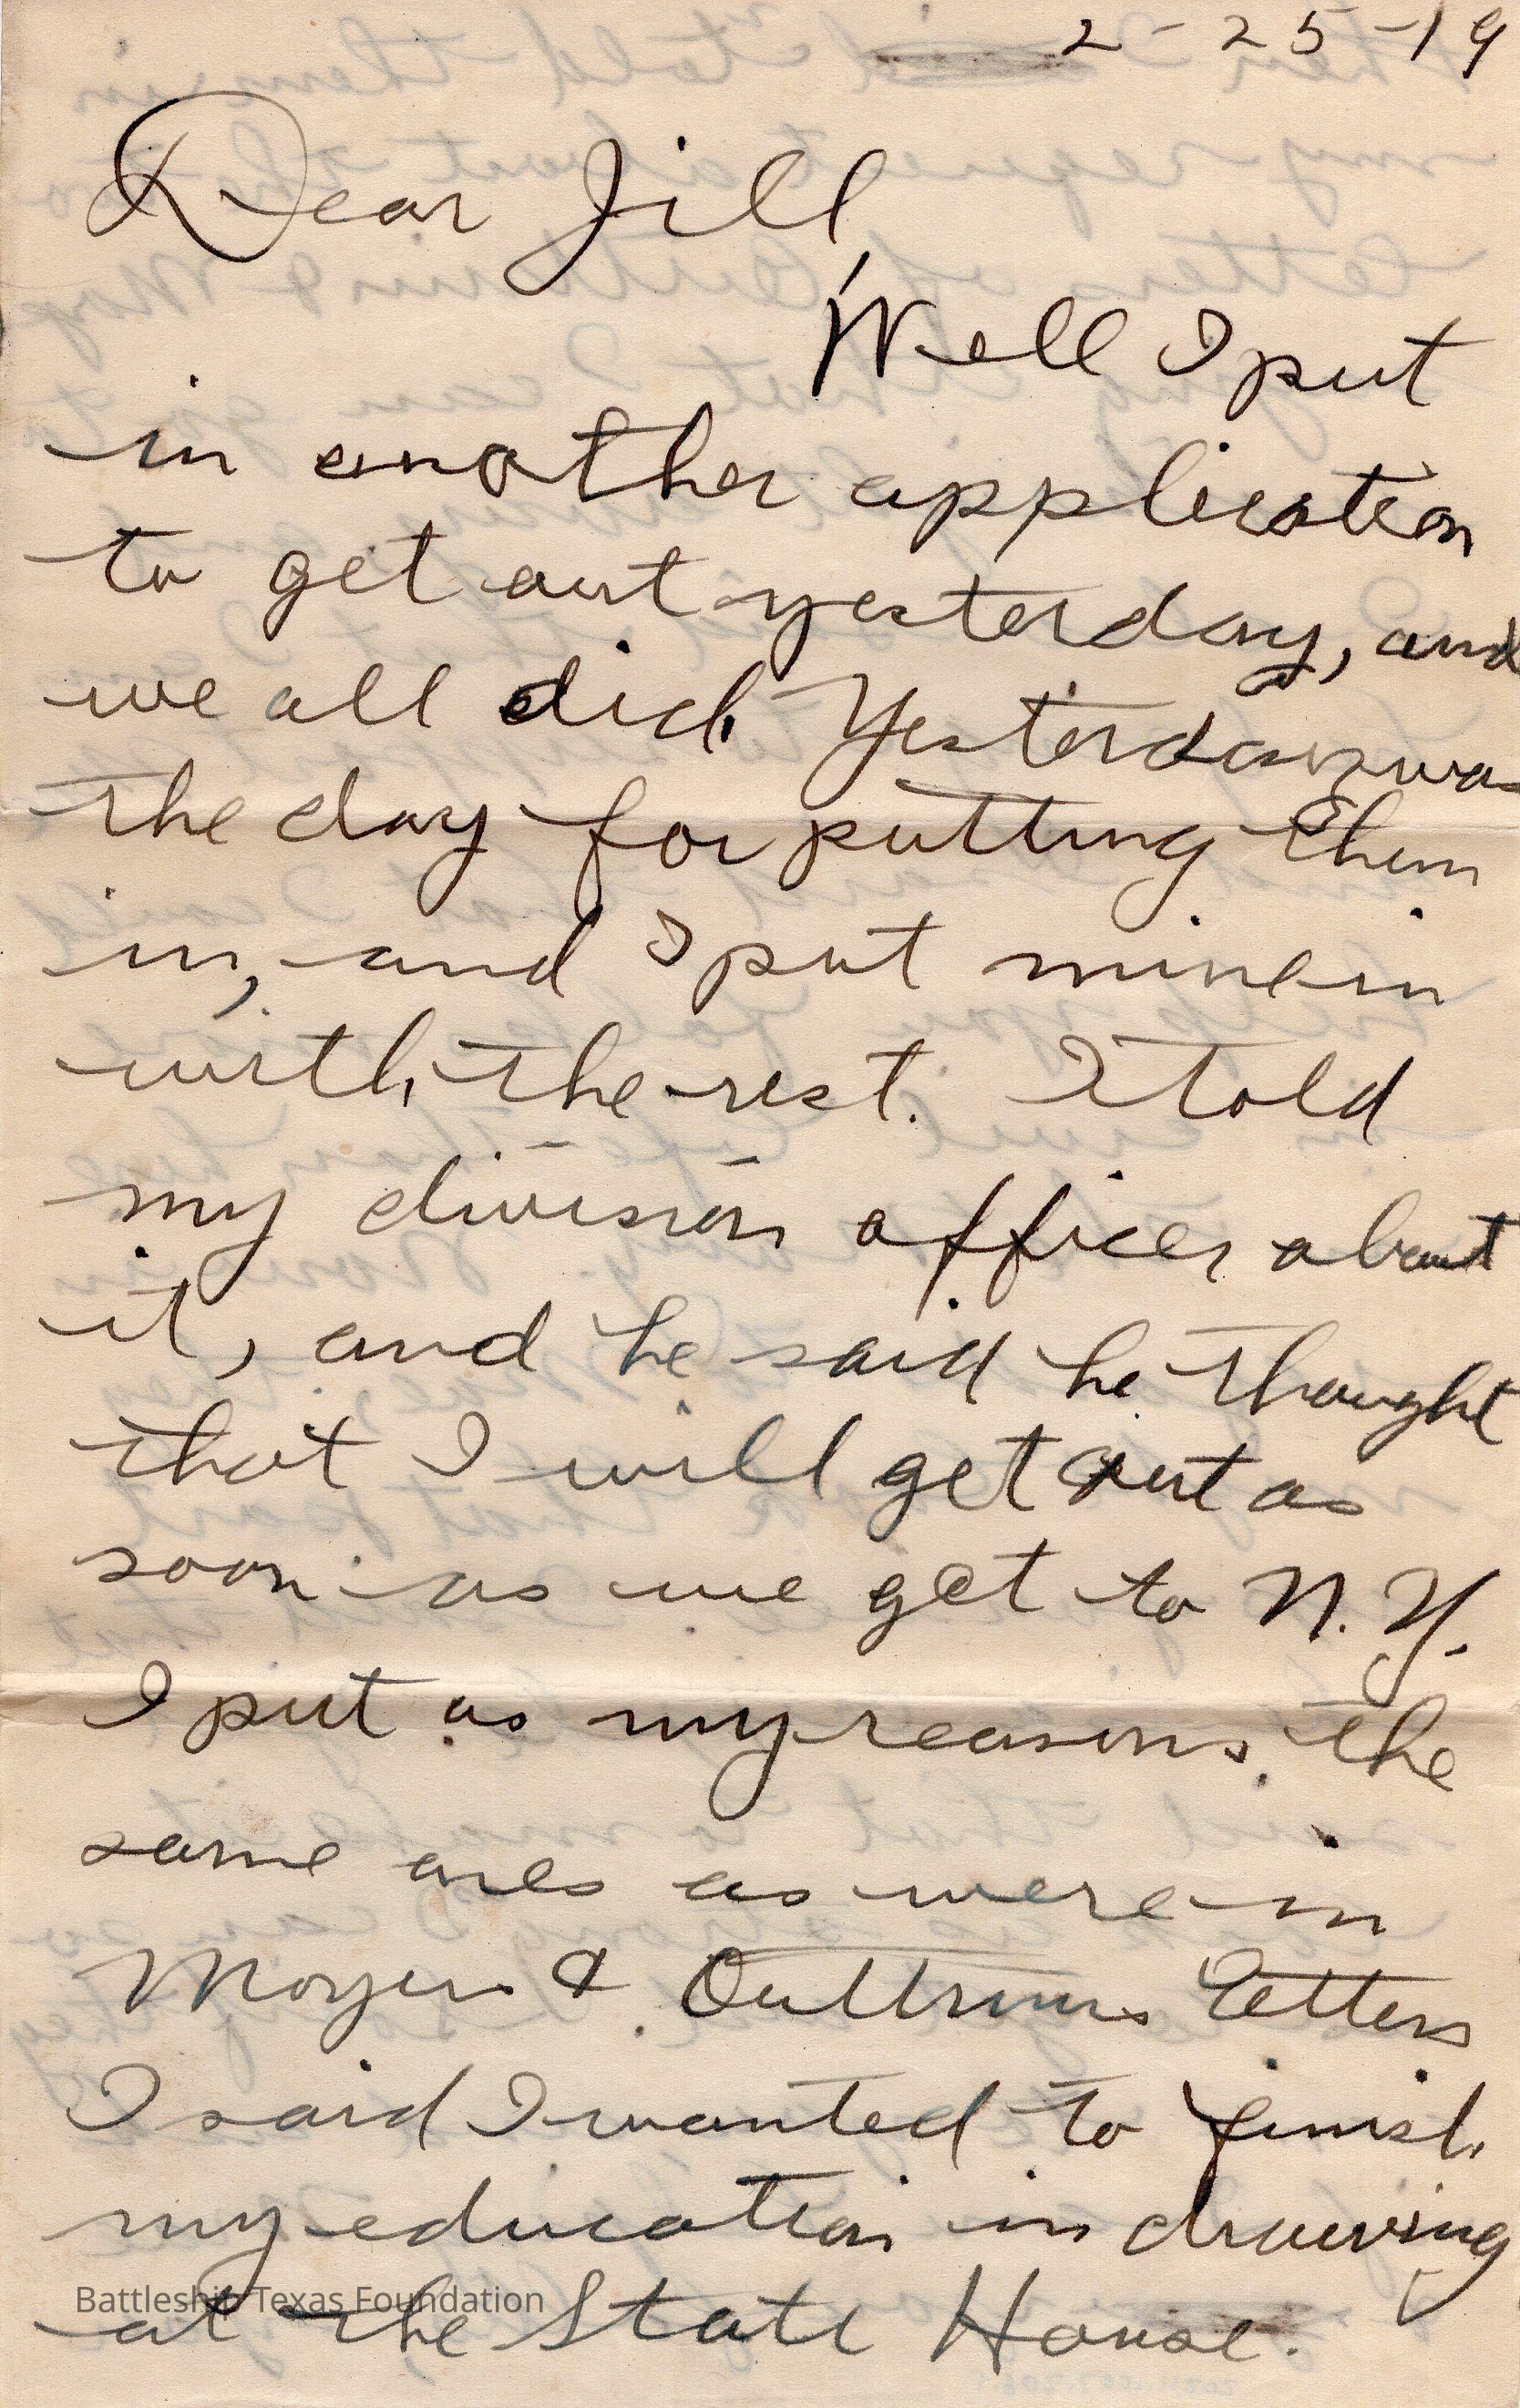 2-25-19
Dear Jill,
Well I put
in another application
to get out yesterday, and
we all did. Yesterday was
the day for putting them
in, and I put mine in
with the rest. I told
my division officer about
it, and he said he thought
that I will get out as
soon as we get to N.Y.
I put as my reasons, the
same ones as were in
Moyers & Outtrims letters
I said I wanted to finish
my education in drawing
at the State House.
Battleship Texas Foundation